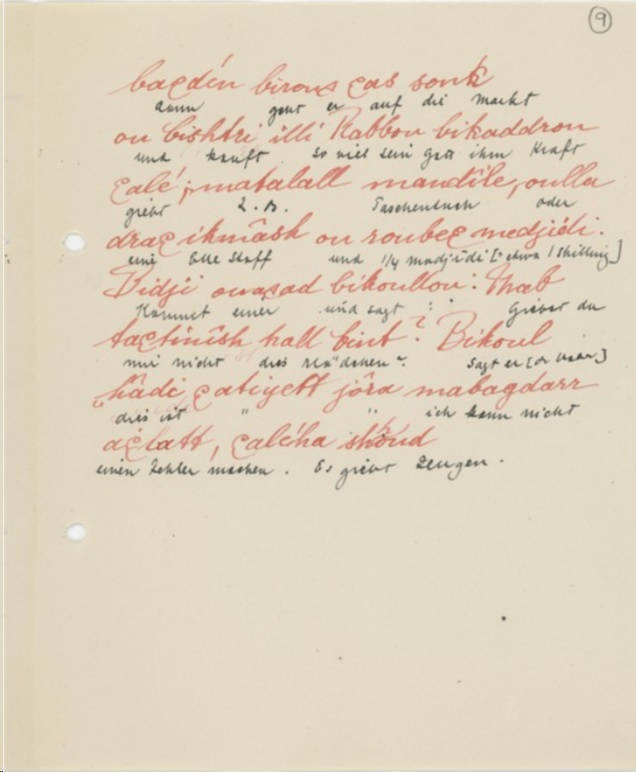 9
baçdén birouç ças souk
dann geht er auf die Markt
ou bishtri illi Rabbou bikaddrou
und kauft so viel sein Gott ihm Kraft
çalé, matalall mandîle, oulla
giebt z.B. Taschentuch oder
draç ikmâsh ou roubeç medjidi.
eine Elle Stoff und 1/4 Madjidi [= etwa 1 shilling]
Vidji ouaçad bikoullou: Mab
Kommt einer und sagt : Giebst du
taçtinîsh hall bint? Bikoul
mir nicht dies Mädchen? sagt er [der Vater]
"hâdi çatiyett jôra mabagdarr
dies ist " " ich kann nicht
açlatt, çaléha shôud
einen Fehler machen. Es giebt Zeugen.